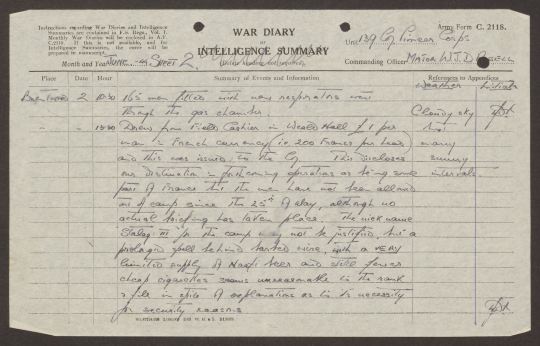 Instructions regarding War Diaries and Intelligence
Summaries are contained in F.S. Regs., Vol. I.
Monthly War Diaries will be enclosed in A.F.
C.2119. If this is not available, and for
Intelligence Summaries, the cover will be
prepared in manuscript.
WAR DIARY
OR
INTELLIGENCE SUMMARY
Army Form C. 2118.
Unit 139 Coy Pioneer Corps
Month and Year JUNE 44 SHEET 2.
Commanding Officer MAJOR W.J.D.
Place Date Hour Summary of Events and Information References to Appendices
Weather Initials
2 1030 165 men fitted with new respirators went
through the gas chamber. Cloudy sky
" " 1530 Drew from Field Cashier in Weald Hall £1 per but
man in French currency (i.e. 200 Francs per head) many
and this was issued to the Coy. This discloses sunny
our destination in forthcoming operations as being some intervals.
part of France but the men have not been allowed
out of camp since the 25th of May, although no
actual briefing has taken place. The nickname
"Stalag III" for the camp may not be justified, but a
prolonged spell behind barbed wire, with a VERY
limited supply of Naafi beer and still fewer
cheap cigarettes seems unreasonable to the rank
& file in spite of explanations as to its necessity
for security reasons